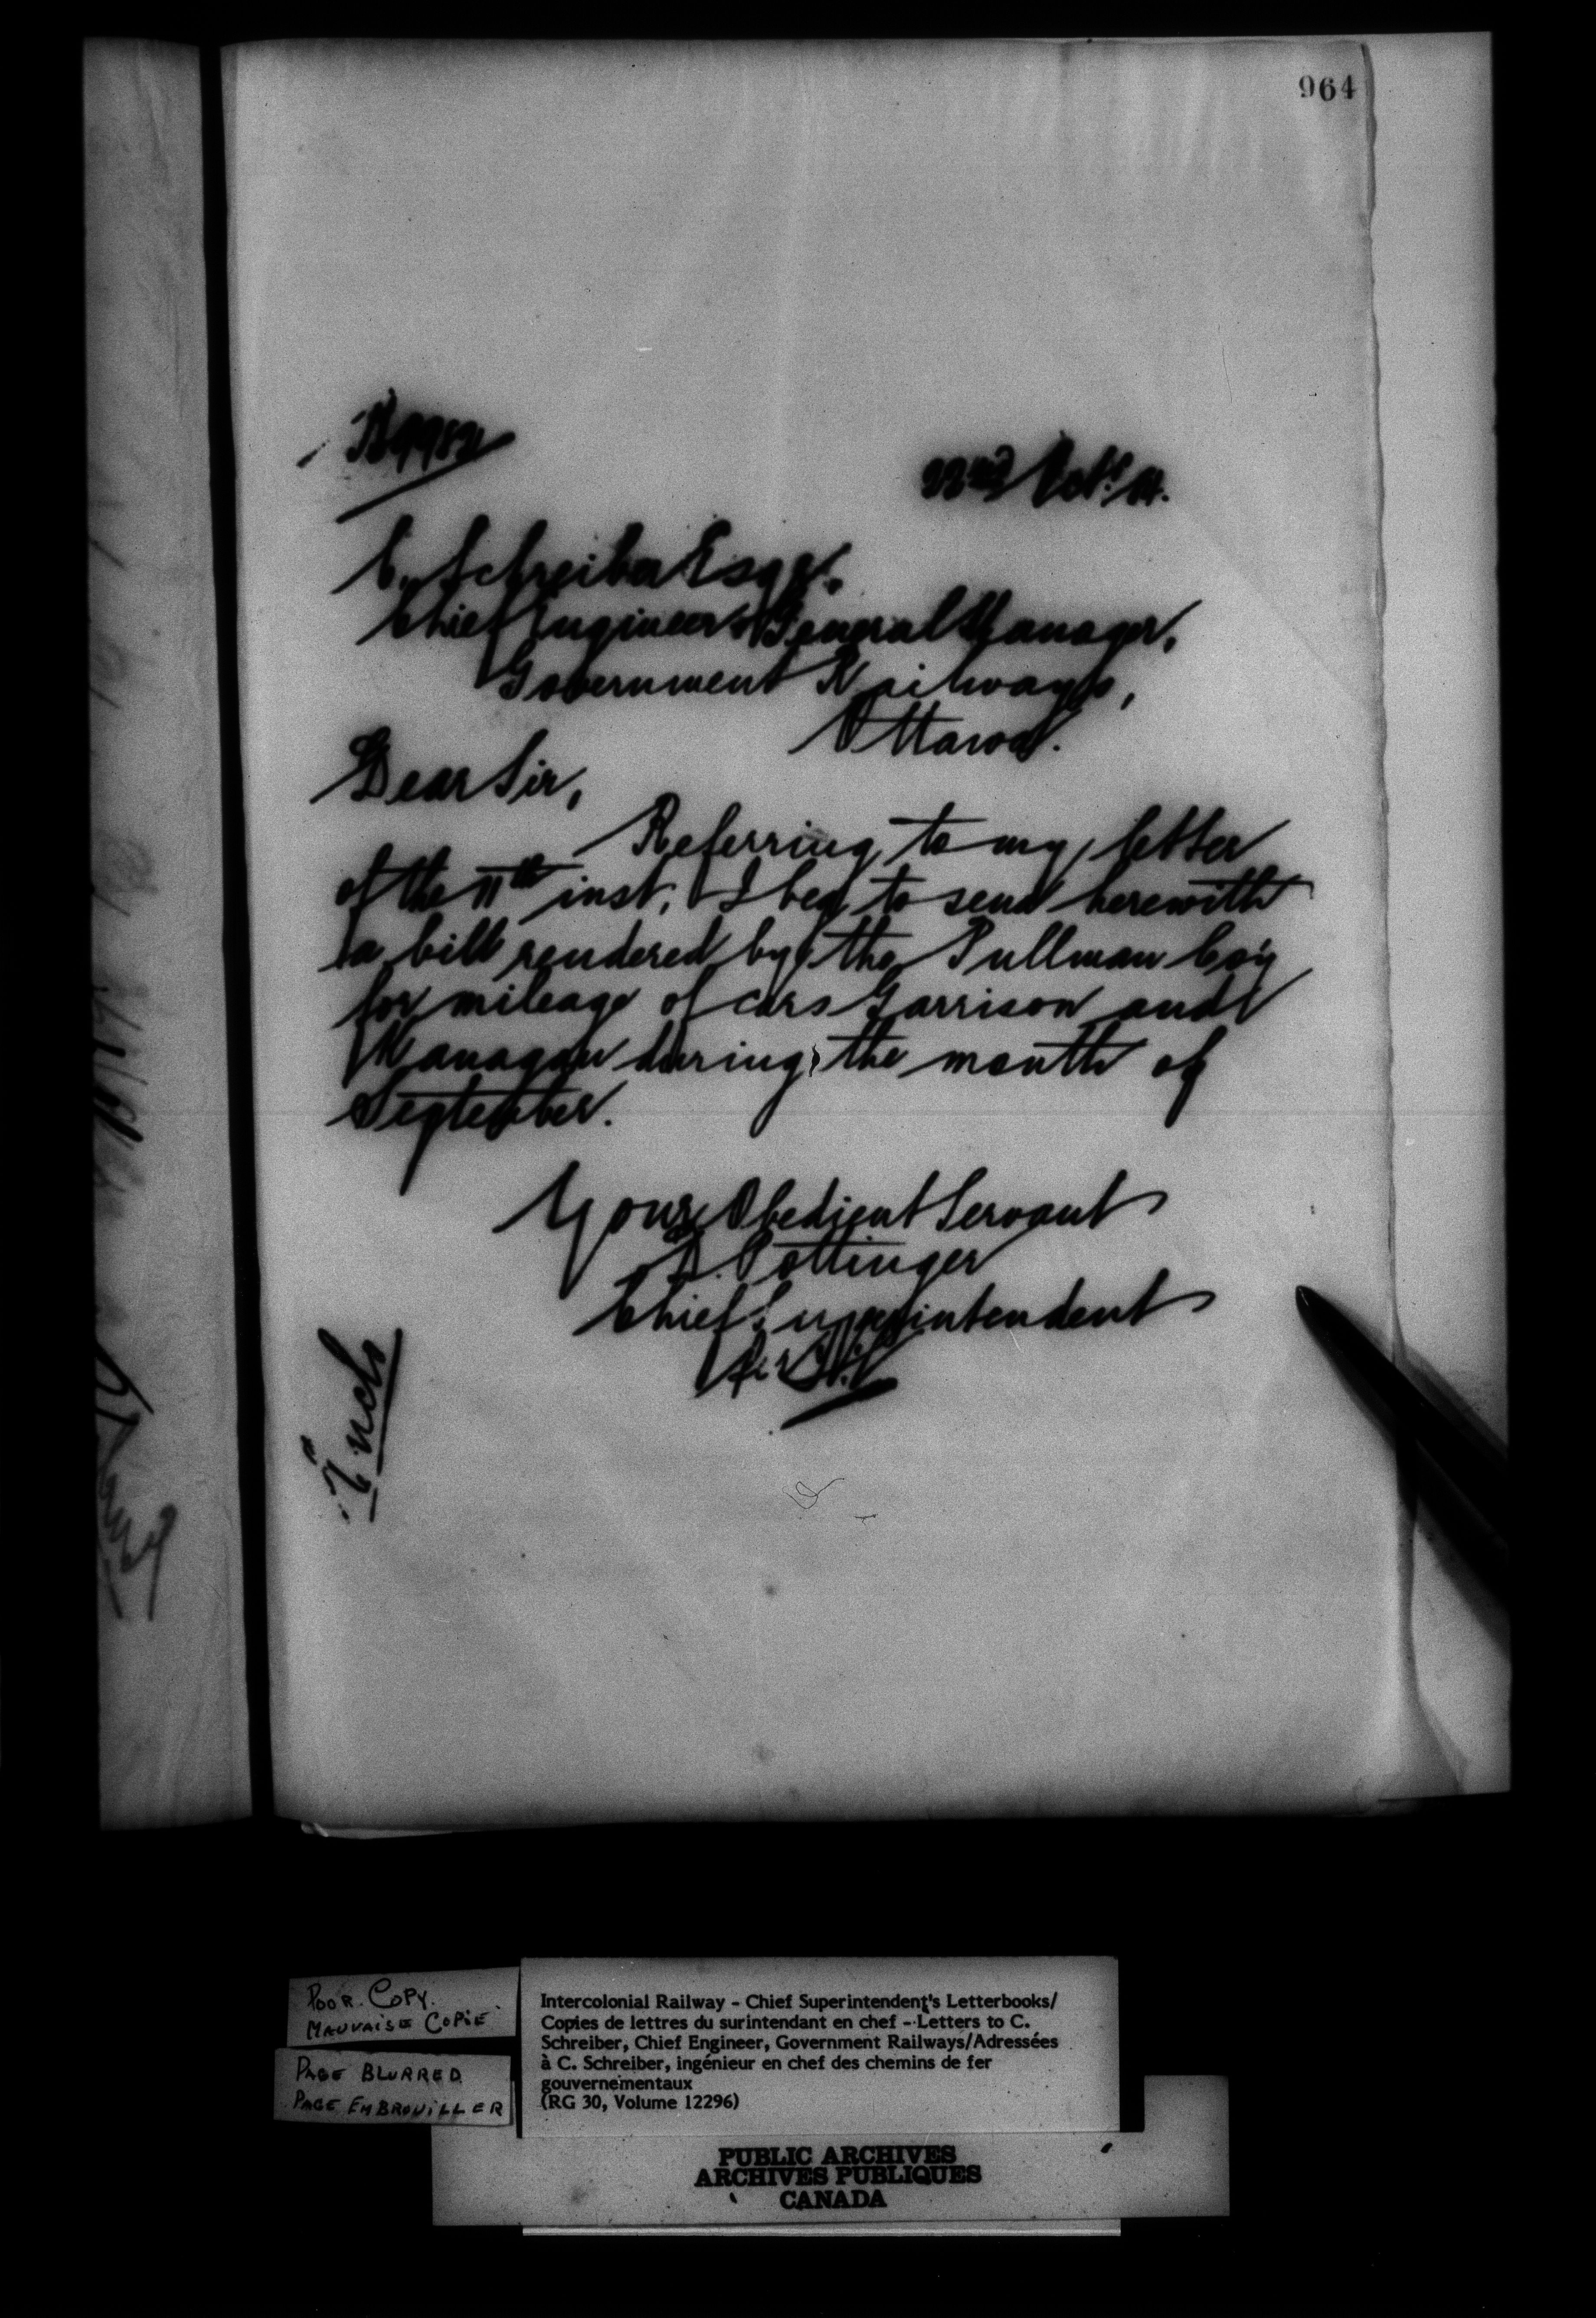 964
22nd Oct.
C. Schreiber Esqr.
Chief Engineer & General Manager,
Government Railways,
Ottawa.
Dear Sir,
Referring to my letter
of the 11th inst, I beg to send herewith
a bill rendered by the Pullman Coy
for mileage of cars Garrison and
during the month of
September.
Your Obedient Servant
D. Pottinger
Chief Superintendent
Per
Incls
POOR COPY.
MAUVAISE COPIE
PAGE BLURRED
PAGE EMBROUILLER
Intercolonial Railway - Chief Superintendent's Letterbooks/
Copies de lettres du surintendant en chef - Letters to C.
Schreiber, Chief Engineer, Government Railways/Adressées
à C. Schreiber, ingénieur en chef des chemins de fer
gouvernementaux
(RG 30, Volume 12296)
PUBLIC ARCHIVES
ARCHIVES PUBLIQUES
CANADA